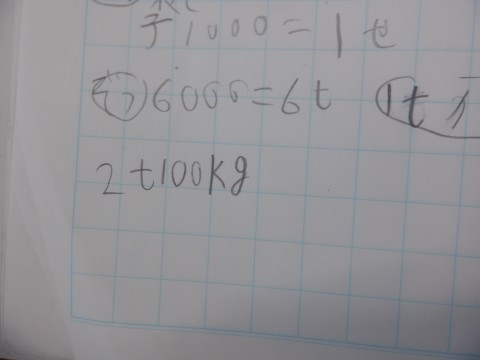 1000=1t
6000=6t 1t
2t100kg